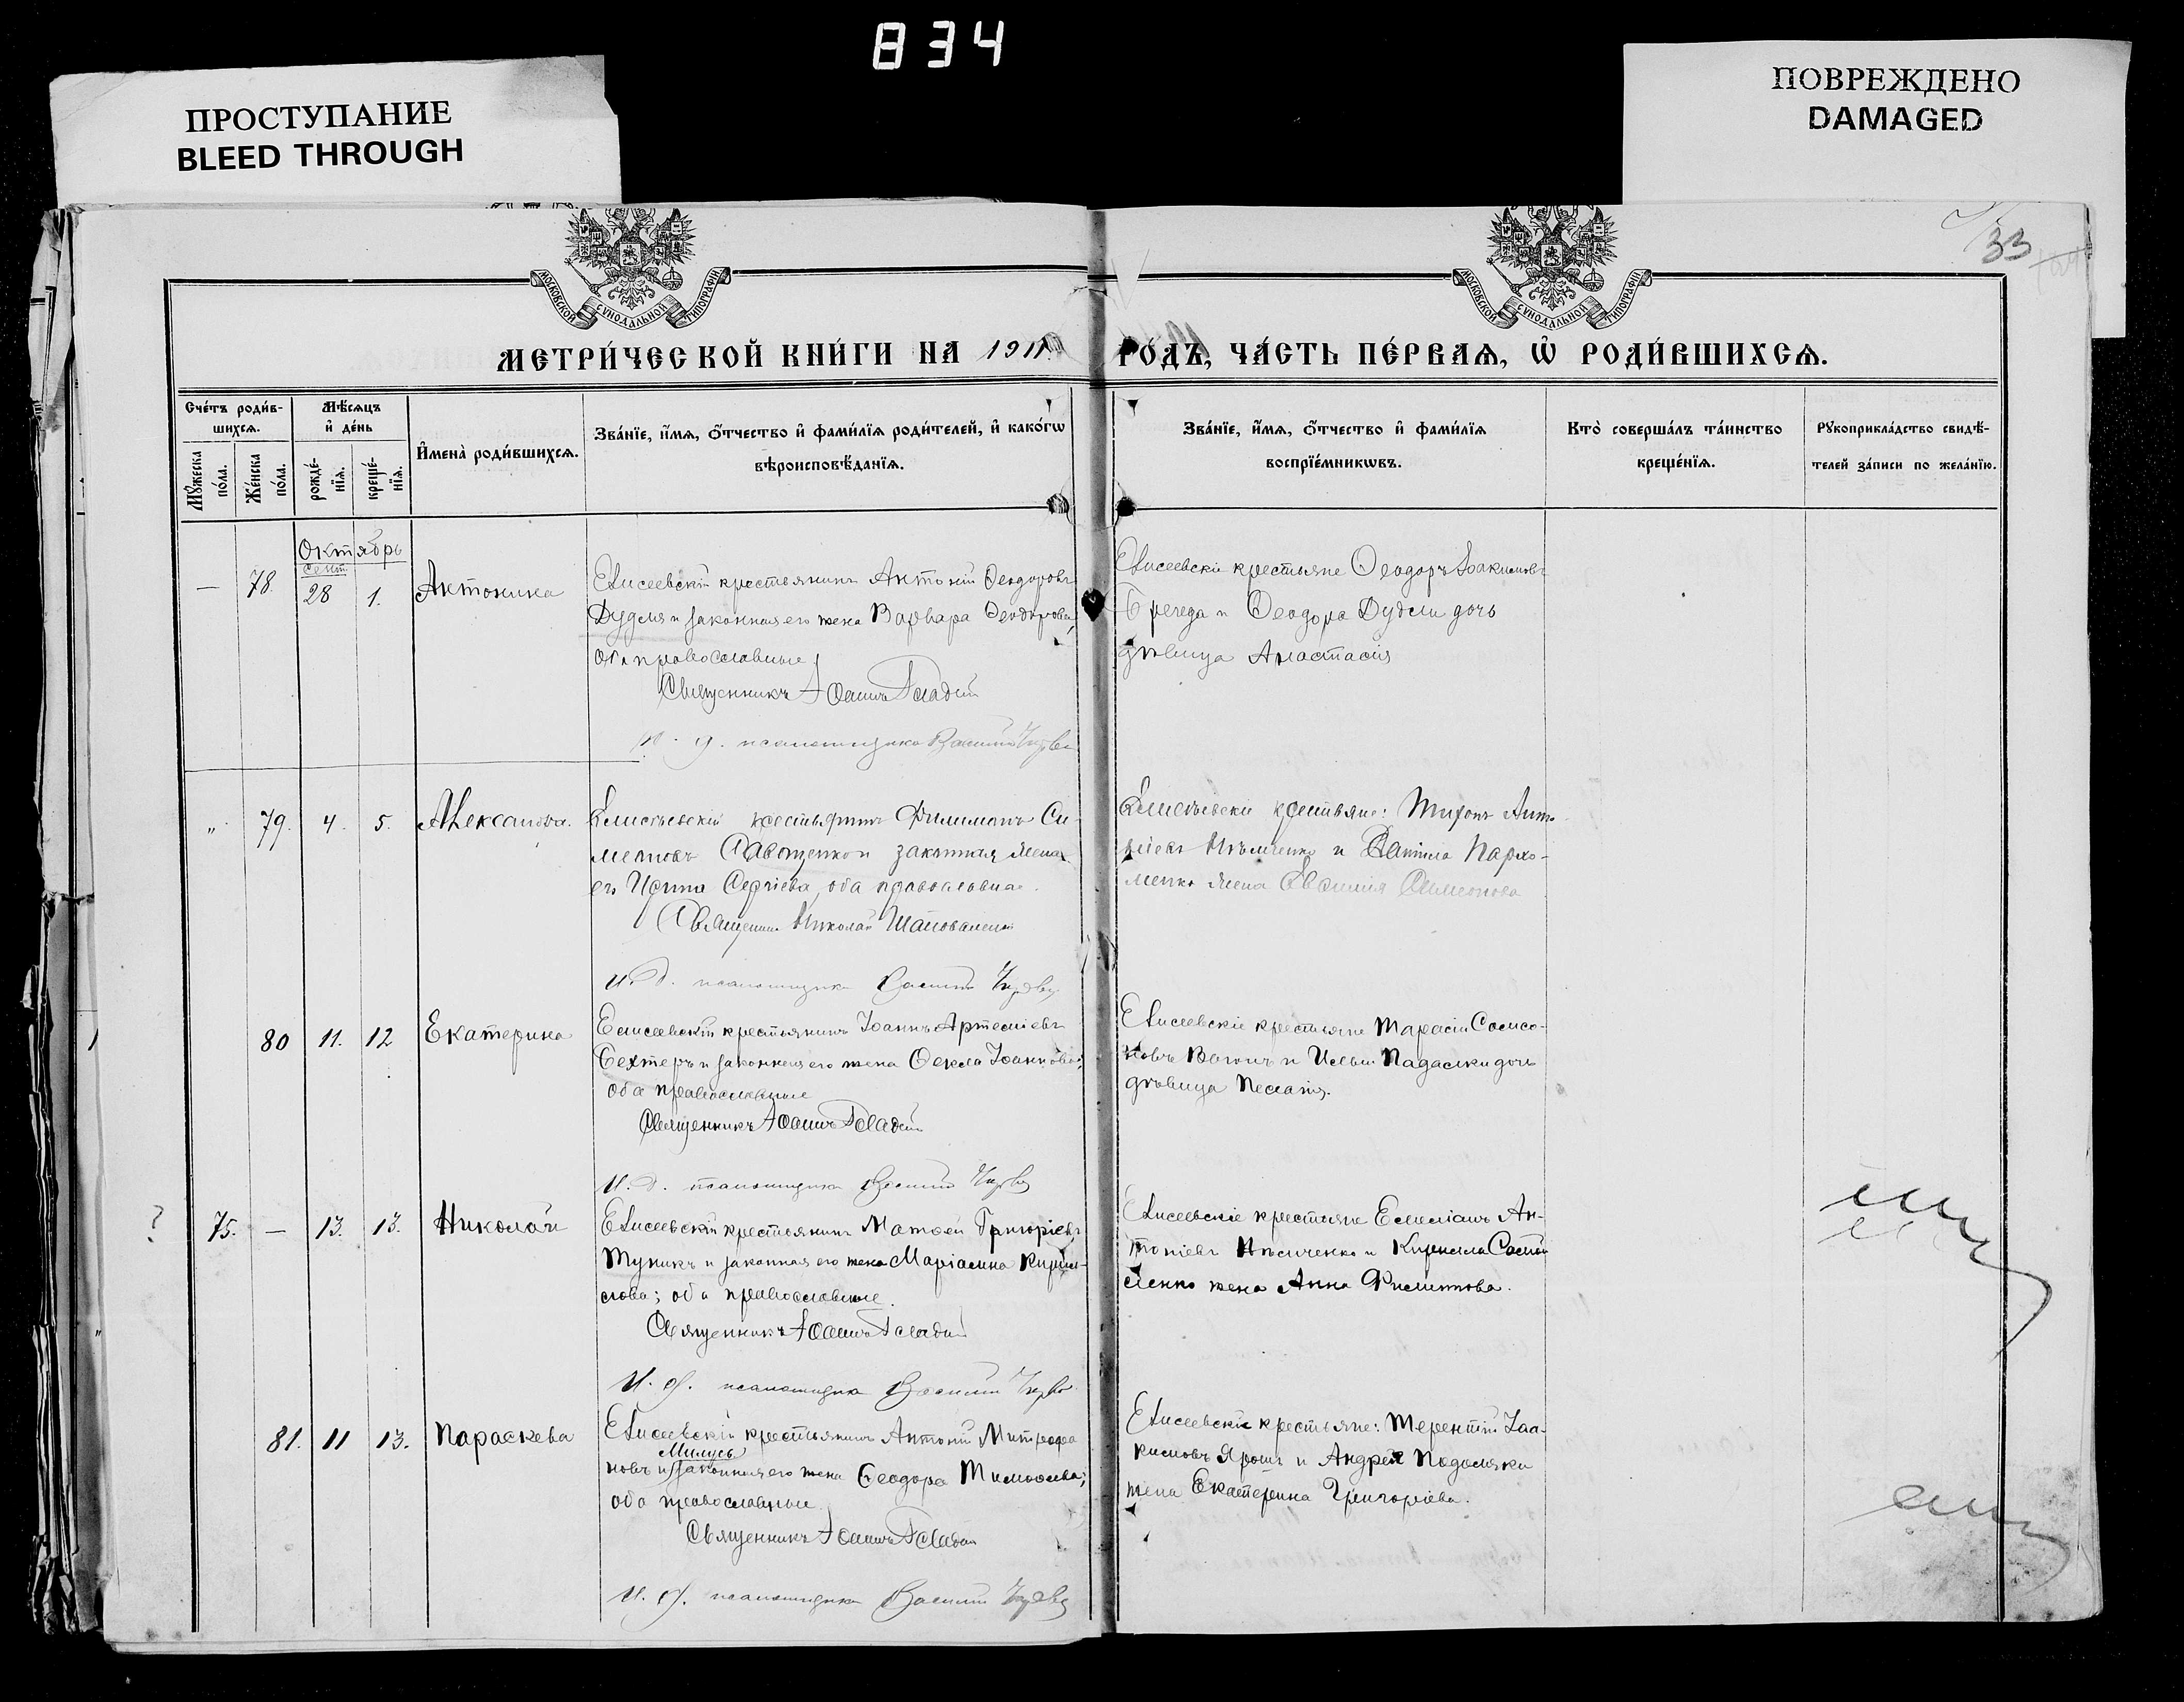 834
ПРОСТУПАНИЕ
BLEED THROUGH
ПОВРЕЖДЕНО
DAMAGED
33
МОСКОВСКОЙ СУНОДАЛЬНОЙ ТИПОГРАФІИ
МОСКОВСКОЙ СУНОДАЛЬНОЙ ТИПОГРАФІИ
МЕТРИ́ЧЕСКОЙ КНИ́ГИ НА 1911
ГО́ДЪ, ЧА́СТЬ ПЕ́РВАѦ, Ѡ҆ РОДИ́ВШИХСѦ.
Сче́тъ роди́в-
шихсѧ.
Мꙋ́жеска
по́ла.
Же́нска
по́ла.
Мѣ́сѧцъ
и҆ де́нь
рожде́-
нїѧ.
креще́-
нїѧ.
И҆мена̀ роди́вшихсѧ.
Зва́нїе, и҆́мѧ, ѻ҆́тчество и҆ фами́лїѧ роди́телей, и҆ како́гѡ
вѣроисповѣ́данїѧ.
Зва́нїе, и҆́мѧ, ѻ҆́тчество и҆ фами́лїѧ
воспрїе́мникѡвъ.
Кто̀ соверша́лъ та́инство
креще́нїѧ.
Рꙋкоприкла́дство свидѣ́-
телей за́писи по жела́нїю.
Октябрь
сент.
— 78. 28 1. Антонина
Елисеевскій крестьянинъ Антоній Ѳеодоровъ
Дудля и законная его жена Варвара Ѳеодорова,
оба православные
Священникъ Іоаннъ Гладкій
И. д. псаломщика Василій
Елисеевскіе крестьяне Ѳеодоръ Іоакимовъ
и Ѳеодора Дудли дочь
дѣвица Анастасія
" 79. 4. 5. Александра.
Елисѣевскій крестьянинъ Филимонъ Си-
меоновъ Савощенко и законная жена
его Ирина Сергіева, оба православнае.
Священникъ Николай Шаповаленко
И. д. псаломщика Василій
Елисѣевскіе крестьяне: Тихонъ Анто-
ніевъ и Даніила Пархо-
менко жена Евдокія Симеонова
80 11. 12 Екатерина
Елисеевскій крестьянинъ Іоаннъ Артеміевъ
Бехтеръ и законная его жена Ѳекла Іоаннова;
оба православные
Священникъ Іоаннъ Гладкій
И. д. псаломщика Василій
Елисеевскіе крестьяне Тарасій Самсо-
новъ и Ильи Падалки дочь
дѣвица Пелагія.
? 75. — 13. 13. Николай
Елисеевскій крестьянинъ Матѳей Григоріевъ
Тупикъ и законная его жена Маріамна Кирил-
лова; оба православные.
Священникъ Іоаннъ Гладкій
И. д. псаломщика Василій
Елисеевскіе крестьяне Емеліанъ Ан-
тоніевъ и Кирилла
ленко жена Анна Филиппова.
81. 11 13. Параскева
Елисеевскій крестьянинъ Антоній Митрофа
Милусь
новъ и законная его жена Ѳеодора Тимоѳеева;
оба православные.
Священникъ Іоаннъ Гладкій
И. д. псаломщика Василій
Елисеевскіе крестьяне: Терентій Іоа-
кимовъ Ярошъ и Андрея Подоляки
жена Екатерина Григоріева.